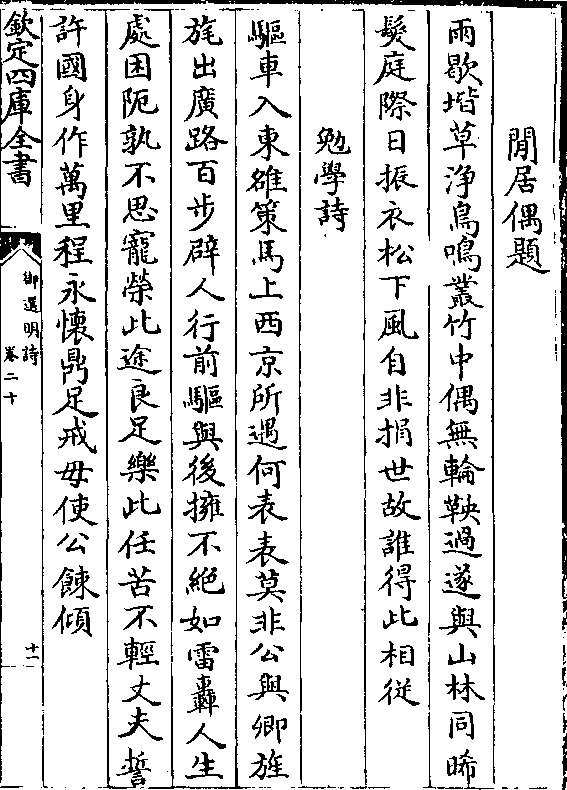 閒居偶題
雨歇堦草淨鳥鳴叢竹中偶無輪鞅過遂與山林同晞
髮庭際日振衣松下風自非捐世故誰得此相從
勉學詩
驅車入東雒策馬上西京所遇何表表莫非公與卿旌
旄出廣路百步辟人行前驅與後擁不絕如雷轟人生
處困阨孰不思寵榮此途良足樂此任苦不輕丈夫誓
許國身作萬里程永懷鼎足戒毋使公餗傾
欽定四庫全書
御選明詩
卷二十
十一